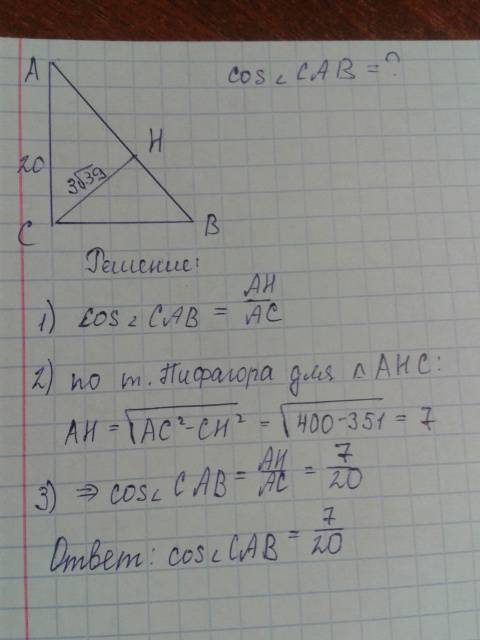 cos∠CAB = ?
A
H
20
3√39
C
B
Решение:
1) cos∠CAB = AH/AC
2) по т. Пифагора для △AHC:
AH = √(AC²-CH²) = √(400-351) = 7
3) ⇒ cos∠CAB = AH/AC = 7/20
Ответ: cos∠CAB = 7/20